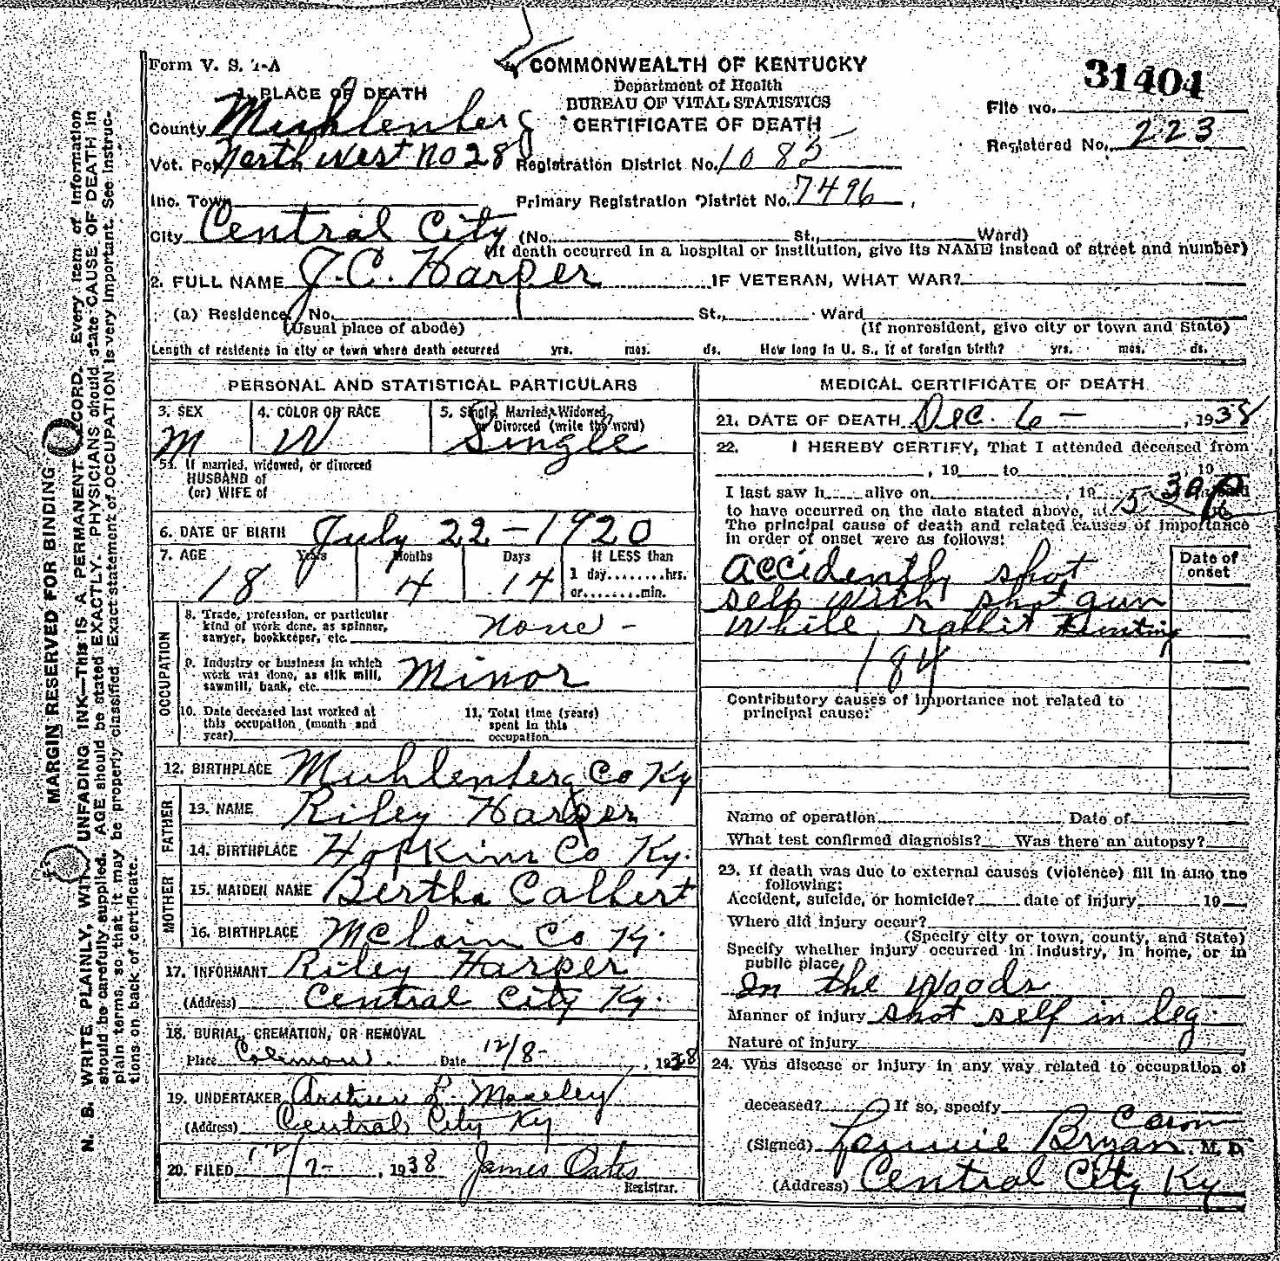 Form V. S. 1-A
COMMONWEALTH OF KENTUCKY
Department of Health
BUREAU OF VITAL STATISTICS
CERTIFICATE OF DEATH
31404
File No.
Registered No. 223
1. PLACE OF DEATH
County Muhlenberg
Vot. Pct. North West No 28 Registration District No. 1082
Inc. Town Primary Registration District No. 7496
City Central City (No. St., Ward)
(If death occurred in a hospital or institution, give its NAME instead of street and number)
2. FULL NAME J.C. Harper IF VETERAN, WHAT WAR?
(a) Residence No. St., Ward
(Usual place of abode) (If nonresident, give city or town and State)
Length of residents in city or town where death occurred yrs. mos. ds. How long in U. S., If of foreign birth? yrs. mos. ds.
PERSONAL AND STATISTICAL PARTICULARS
3. SEX 4. COLOR OR RACE 5. Single, Married, Widowed,
or Divorced (write the word)
M W Single
5a. If married, widowed, or divorced
HUSBAND of
(or) WIFE of
6. DATE OF BIRTH July 22 - 1920
7. AGE Years Months Days If LESS than
1 day........hrs.
or........min.
18 4 14
OCCUPATION
8. Trade, profession, or particular
kind of work done, as spinner,
sawyer, bookkeeper, etc. none -
9. Industry or business in which
work was done, as silk mill,
sawmill, bank, etc. Minor
10. Date deceased last worked at
this occupation (month and
year)
11. Total time (years)
spent in this
occupation
12. BIRTHPLACE Muhlenberg Co Ky
FATHER
13. NAME Riley Harper
14. BIRTHPLACE Hopkins Co Ky.
MOTHER
15. MAIDEN NAME Bertha Calhert
16. BIRTHPLACE McLain Co Ky.
17. INFORMANT Riley Harper
(Address) Central City Ky.
18. BURIAL, CREMATION, OR REMOVAL
Place Date 12/8- , 1938
19. UNDERTAKER L. Moseley
(Address) Central City Ky
20. FILED 12/7- , 1938 James Oates
Registrar.
MEDICAL CERTIFICATE OF DEATH
21. DATE OF DEATH Dec. 6 - , 1938
22. I HEREBY CERTIFY, That I attended deceased from
, 19 to , 19
I last saw h alive on , 19 said
to have occurred on the date stated above, at 5 30 P
The principal cause of death and related causes of importance
in order of onset were as follows:
Date of
onset
accidently shot
self with shotgun
while rabbit Hunting
184
Contributory causes of importance not related to
principal cause:
Name of operation Date of
What test confirmed diagnosis? Was there an autopsy?
23. If death was due to external causes (violence) fill in also the
following:
Accident, suicide, or homicide? date of injury 19
Where did injury occur?
(Specify city or town, county, and State)
Specify whether injury occurred in industry, in home, or in
public place,
In the woods
Manner of injury shot self in leg
Nature of injury
24. Was disease or injury in any way related to occupation of
deceased? If so, specify
Coron
(Signed) Bryan M. D.
(Address) Central City Ky
MARGIN RESERVED FOR BINDING
N. B. WRITE PLAINLY, WITH UNFADING INK—THIS IS A PERMANENT RECORD. Every item of information
should be carefully supplied. AGE should be stated EXACTLY. PHYSICIANS should state CAUSE OF DEATH in
plain terms, so that it may be properly classified. Exact statement of OCCUPATION is very important. See instruc-
tions on back of certificate.